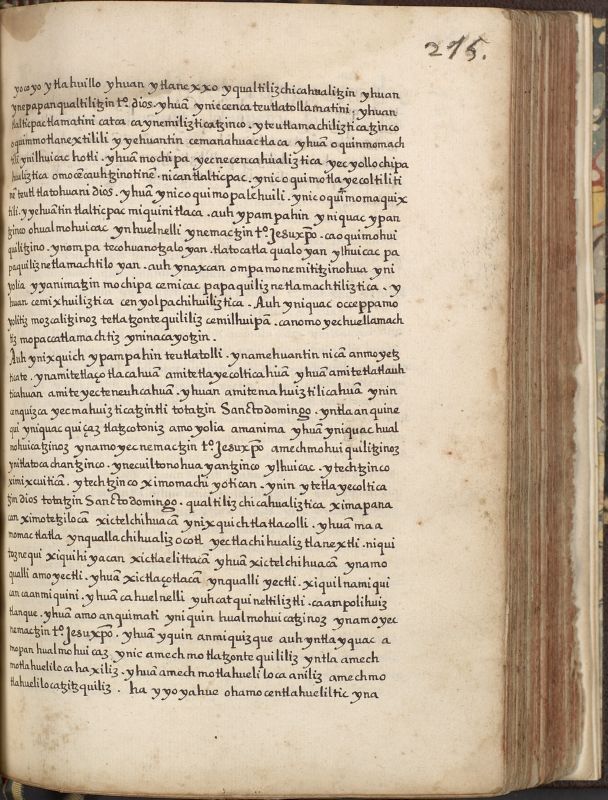 215.
yocoyo ytlahuillo yhuan ytlanexxo yqualtilizchicahualitzin yhuan
ynepapanqualtilitzin to dios. yhuā yniecenca teutlatollamatini, yhuan
tlalticpactlamatini catca caynemiliztica tzinco. yteutlamachiliztica tzinco
oquimmotlanextilili yyehuantin cemanahuactlaca yhuā oquinmomach
tili ynilhuicac hotli. yhuā mochipa yecnecencahualiztica yecyollochipa
hualiztica omocēcauhtzinotinē. nican tlalticpac. ynic oquimotlayecoltiliti
nē teutl tlatohuani dios. yhuā ynic oquimopalehuili. ynic oquīmomaquix
tili. yyehuātin tlalticpac miquini tlaca. auh ypampahin yniquac ypan
tzinco ohualmohuicac yn huelnelli ynemactzin to Jesuxpō. caoquimohui
quilitzino. ynompa tecohuanotzaloyan. tlatocatlaqualoyan ylhuicac pa
paquiliznetlamachtiloyan. auh ynaxcan ompa monemititzinohua yni
yolia yyanimatzin mochipa cemicac papaquiliznetlamachtiliztica. y
huan cemixhuiliztica cenyolpachihuiliztica. Auh yniquac occeppa mo
yolitiz mozcalitzinoz tetlatzontequililiz cemilhuipā. canomo yechuellamach
tiz mopaccatlamachtiz yninacayotzin.
Auh ynixquich ypampahin teutlatolli. ynamehuantin nicā anmoyetz
ticate. ynamitetlaçotlacahuā amitetlayecolticahuā yhuā amitetlatlauh
ticahuan amiteyecteneuhcahuā. yhuan amitemahuiztilicahuā ynin
cenquizca yecmahuizticatzintli totatzin Sancto domingo. yntla anquine
qui yniquac quiçaz tlatzcotoniz amo yolia amanima yhuā yniquac hual
mohuicatzinoz ynamoyecnemactzin to Jesuxpō amechmohuiquilitzinoz
ynitlatocachantzinco. ynecuiltonohuayantzinco ylhuicac. ytechtzinco
ximixcuitica. ytechtzinco ximomachiyotican. ynin ytetlayecoltica
tzin dios totatzin Sancto domingo. qualtilizchicahualiztica ximapana
can ximotetzilocā xictelchihuacā ynixquich tlatlacolli. yhuā ma a
momac tlatla ynqualla chihualizocotl yectlachihualiztlanextli. niqui
toznequi xiquihiyacan xictlaelittacā yhuā xictelchihuacā ynamo
qualli amo yectli. yhuā xictlaçotlacā ynqualli yectli. xiquilnamiqui
can ca anmiquini. yhuā cahuelnelli yuhcatqui neltiliztli. caampolihuiz
tlanque. yhuā amo anquimati yniquin hualmohuicatzinoz ynamoyec
nemactzin to Jesuxpō. yhuā yquin anmiquizque auh yntla yquac a
mopan hualmohuicaz ynic amechmotlatzontequililiz yntla amech
motlahuelilocahaxiliz. yhuā amechmotlahuelilocaaniliz amechmo
tlahuelilocatzitzquiliz. ha yyoyahue ohamocentlahueliltic yna